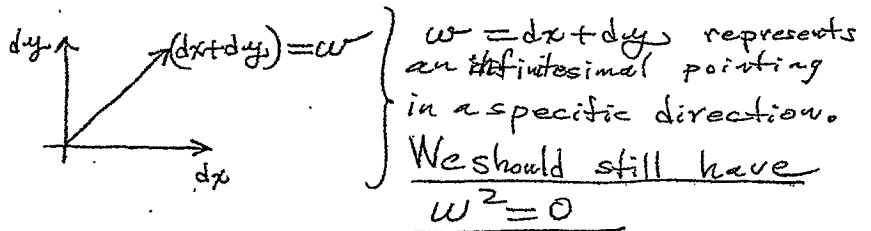 dy (dx+dy) = w
dx
w = dx + dy represents
an infinitesimal pointing
in a specific direction.
We should still have
w² = 0